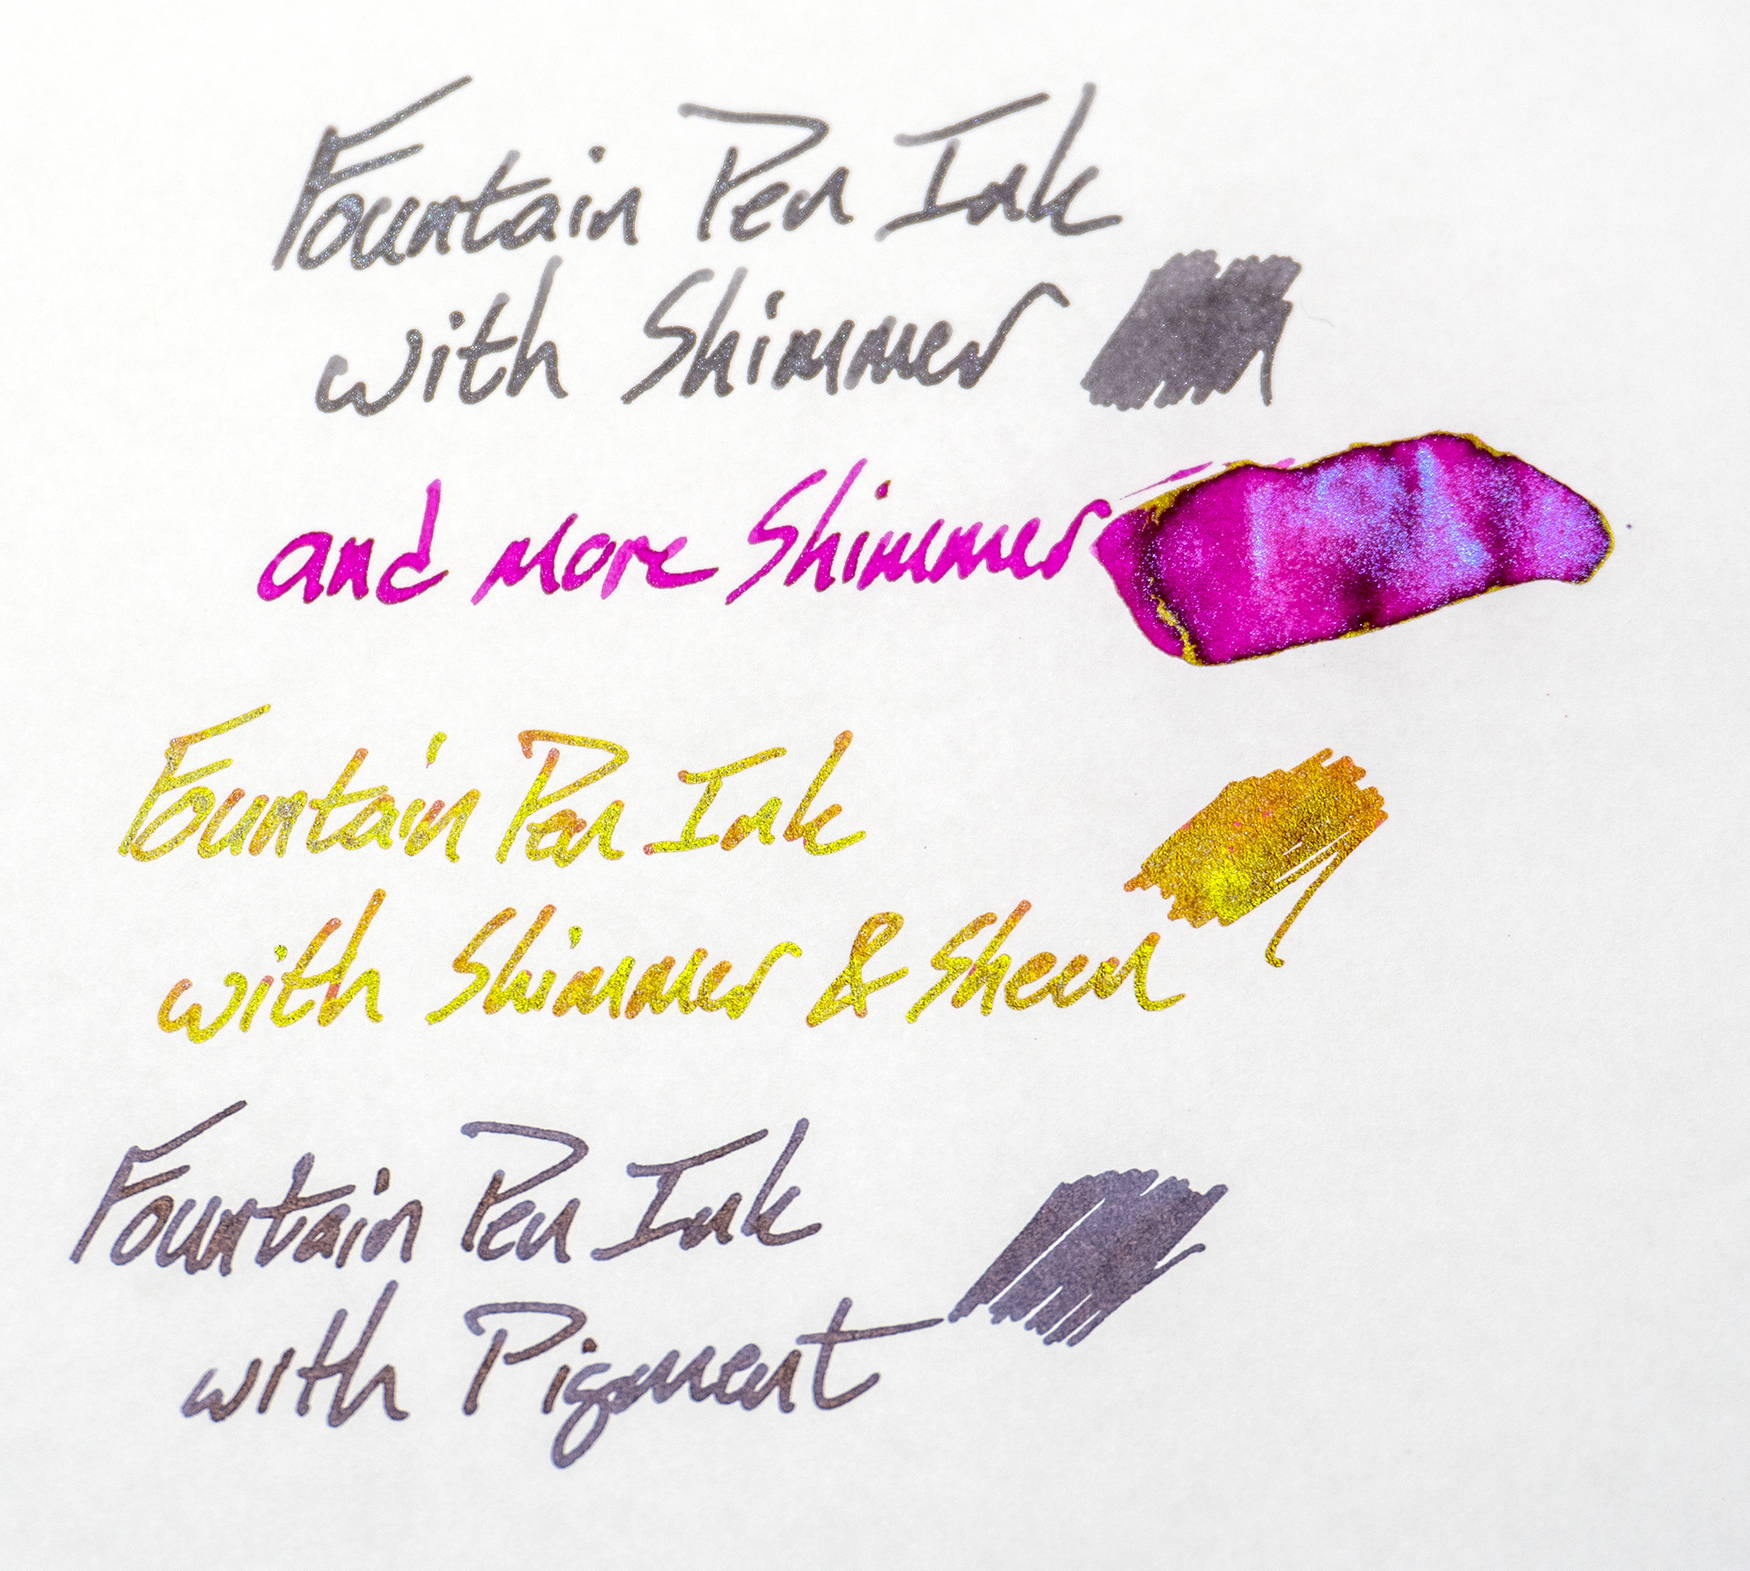 Fountain Pen Ink
with Shimmer
and more Shimmer
Fountain Pen Ink
with Shimmer & Sheen
Fountain Pen Ink
with Pigment